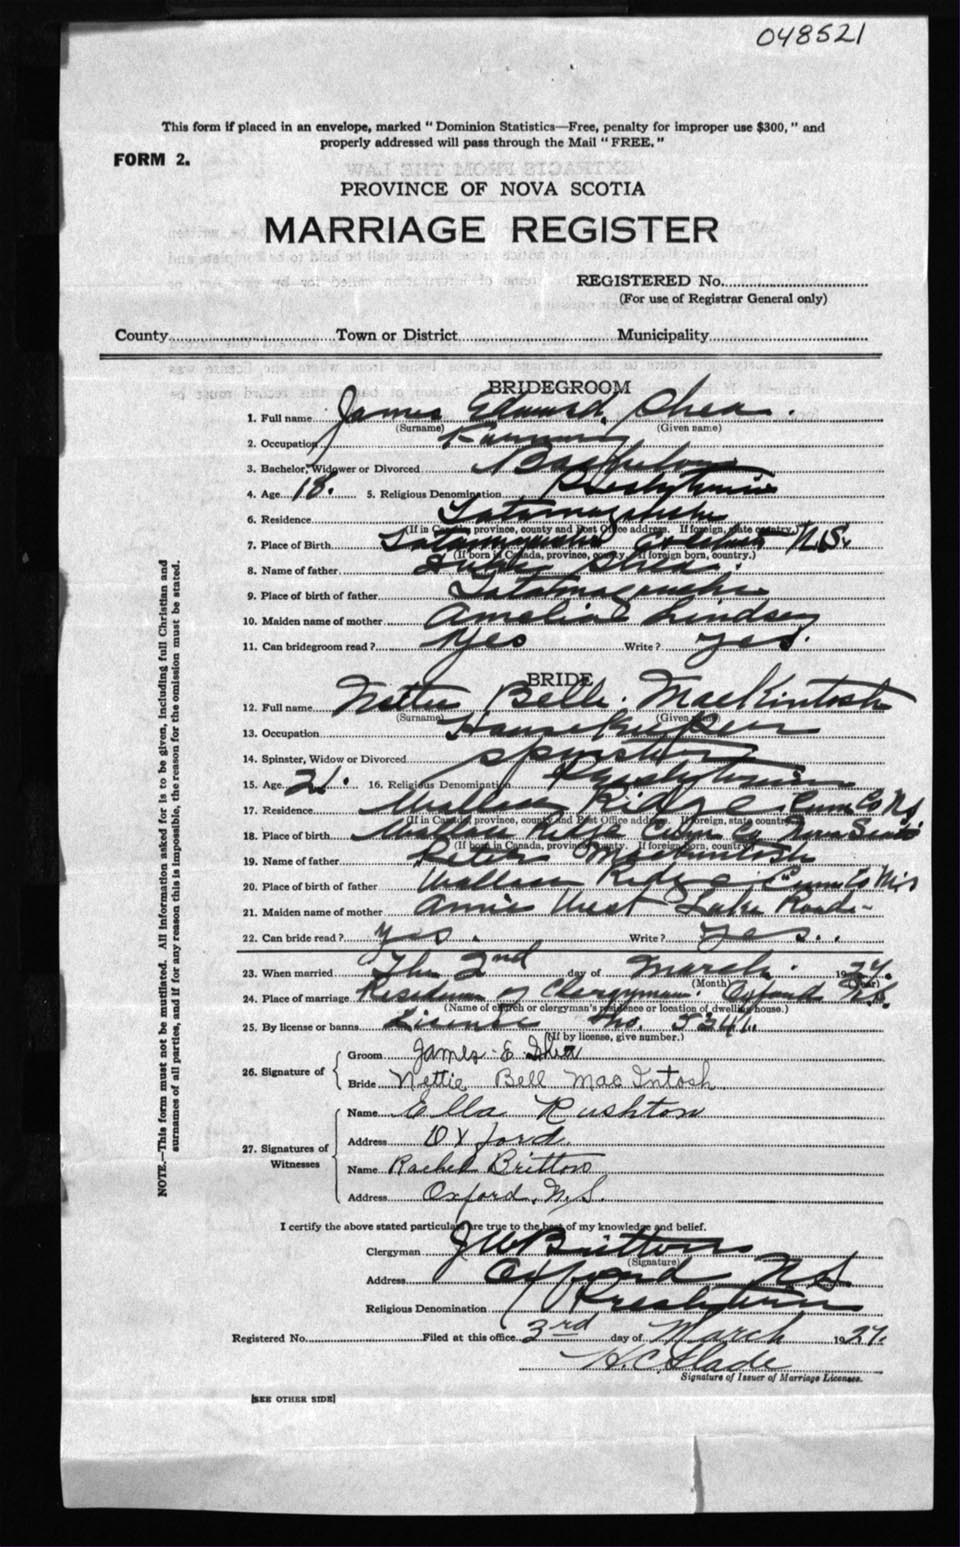 048521
This form if placed in an envelope, marked "Dominion Statistics—Free, penalty for improper use $300," and
properly addressed will pass through the Mail "FREE."
FORM 2.
PROVINCE OF NOVA SCOTIA
MARRIAGE REGISTER
REGISTERED No.
(For use of Registrar General only)
County Town or District Municipality
BRIDEGROOM
1. Full name James Edward Shea.
(Surname) (Given name)
2. Occupation Farming
3. Bachelor, Widower or Divorced Bachelor
4. Age 18. 5. Religious Denomination Presbyterian
6. Residence Tatamagouche
(If in Canada, province, county and Post Office address. If foreign, state country.)
7. Place of Birth Tatamagouche Colchester N.S.
(If born in Canada, province, county. If foreign born, country.)
8. Name of father Shea.
9. Place of birth of father Tatamagouche
10. Maiden name of mother Amelia Lindsay
11. Can bridegroom read? Yes Write? yes.
BRIDE
12. Full name Nettie Belle MacKintosh
(Surname) (Given name)
13. Occupation Housekeeper
14. Spinster, Widow or Divorced Spinster
15. Age 21. 16. Religious Denomination Presbyterian
17. Residence Wallace Ridge Cum Co N.S
(If in Canada, province, county and Post Office address. If foreign, state country.)
18. Place of birth Wallace Ridge Cum Co Nova Scotia
(If born in Canada, province, county. If foreign born, country.)
19. Name of father Peter Mackintosh
20. Place of birth of father Wallace Ridge Cum Co N.S
21. Maiden name of mother Annie West Lake Road
22. Can bride read? yes. Write? yes.
23. When married The 2nd day of March. 1927.
(Month) (Year)
24. Place of marriage Residence of Clergyman. Oxford N.S.
(Name of church or clergyman's residence or location of dwelling house.)
25. By license or banns License No. 5341.
(If by license, give number.)
Groom James E Shea
26. Signature of
Bride Nettie Bell MacIntosh
Name Ella Rushton
Address Oxford.
27. Signatures of
Witnesses
Name Rachel Britton
Address Oxford, N.S.
I certify the above stated particulars are true to the best of my knowledge and belief.
Clergyman J W Britton
(Signature)
Address Oxford N S
Religious Denomination Presbyterian
Registered No. Filed at this office 3rd day of March 1927.
H. C. Slade
Signature of Issuer of Marriage Licenses.
[SEE OTHER SIDE]
NOTE.—This form must not be mutilated. All information asked for is to be given, including full Christian and
surnames of all parties, and if for any reason this is impossible, the reason for the omission must be stated.